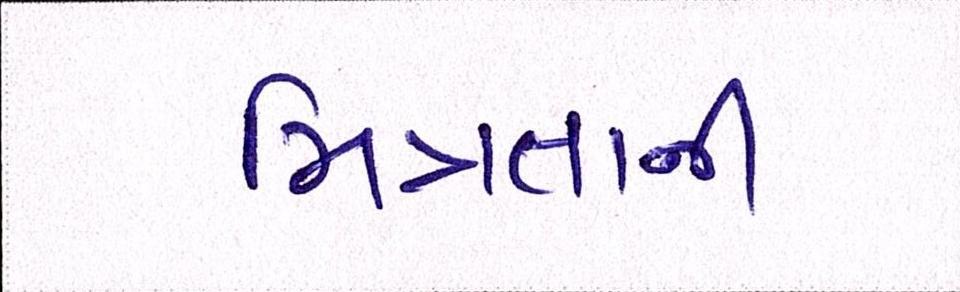 મિત્રતાની